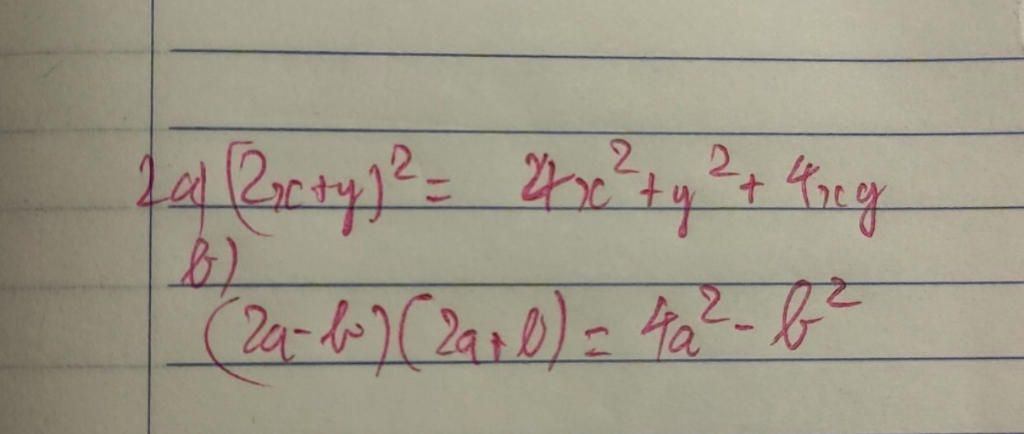 2a) (2x+y)² = 4x² + y² + 4xy
b)
(2a-b)(2a+b) = 4a² - b²